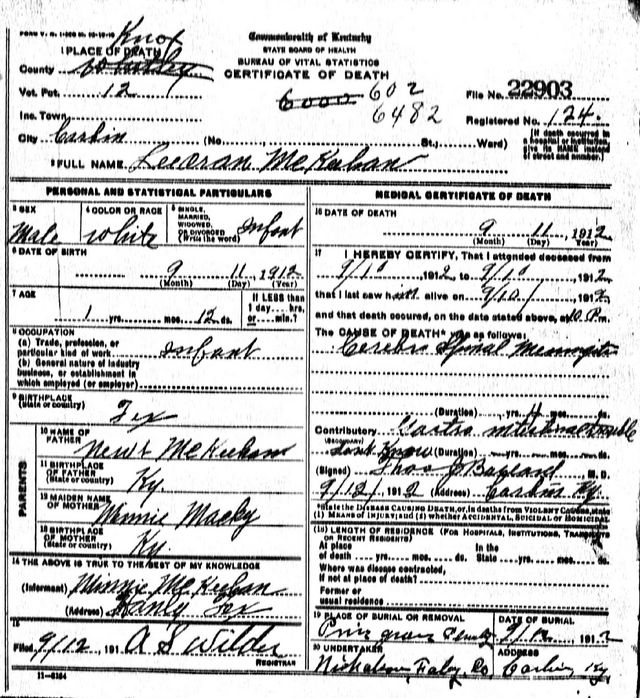 FORM V. S. 1-50M 10-10-10
Knox
Commonwealth of Kentucky
1 PLACE OF DEATH
STATE BOARD OF HEALTH
County Whitley
BUREAU OF VITAL STATISTICS
CERTIFICATE OF DEATH
Vot. Pct. 12
6000 602
File No. 22903
Inc. Town
6482
Registered No. 124.
City Corbin (No. St.; Ward)
[If death occurred in a hospital or institution give its NAME instead of street and number.]
2 FULL NAME McKeehan
PERSONAL AND STATISTICAL PARTICULARS
3 SEX Male
4 COLOR OR RACE White
5 SINGLE, MARRIED, WIDOWED, OR DIVORCED (Write the word) Infant
6 DATE OF BIRTH
9 11 1912
(Month) (Day) (Year)
7 AGE
1 yrs. mos. 12 ds.
If LESS than 1 day hrs. or min.?
8 OCCUPATION
(a) Trade, profession, or particular kind of work Infant
(b) General nature of industry business, or establishment in which employed (or employer)
9 BIRTHPLACE
(State or country) Tex
PARENTS
10 NAME OF FATHER Newt McKeehan
11 BIRTHPLACE OF FATHER (State or country) Ky.
12 MAIDEN NAME OF MOTHER Minnie Macky
13 BIRTHPLACE OF MOTHER (State or country) Ky.
14 THE ABOVE IS TRUE TO THE BEST OF MY KNOWLEDGE
(Informant) Minnie McKeehan
(Address) Tex
15
Filed 9/12, 191 A S Wilder
REGISTRAR
11-6184
MEDICAL CERTIFICATE OF DEATH
16 DATE OF DEATH
9 11 1912
(Month) (Day) (Year)
17 I HEREBY CERTIFY, That I attended deceased from
9/10 1912 to 9/10, 1912
that I last saw him alive on 9/10, 1912
and that death occured, on the date stated above, at 10 P m.
The CAUSE OF DEATH* was as follows:
Cerebro Spinal Meningitis
(Duration) yrs. 4 mos. ds.
Contributory Gastro intestinal trouble
(SECONDARY)
Dont Know (Duration) yrs. mos. ds.
(Signed) Thos J M. D.
9/12/1912 (Address) Corbin Ky.
*State the DISEASE CAUSING DEATH, or, in deaths from VIOLENT CAUSES, state (1) MEANS OF INJURY; and (2) whether ACCIDENTAL, SUICIDAL or HOMICIDAL
(18) LENGTH OF RESIDENCE (FOR HOSPITALS, INSTITUTIONS, TRANSIENTS OR RECENT RESIDENTS)
At place of death yrs. mos. ds. In the State yrs. mos. ds.
Where was disease contracted, If not at place of death?
Former or usual residence
19 PLACE OF BURIAL OR REMOVAL
DATE OF BURIAL
9/12 1912
20 UNDERTAKER
ADDRESS
Corbin Ky